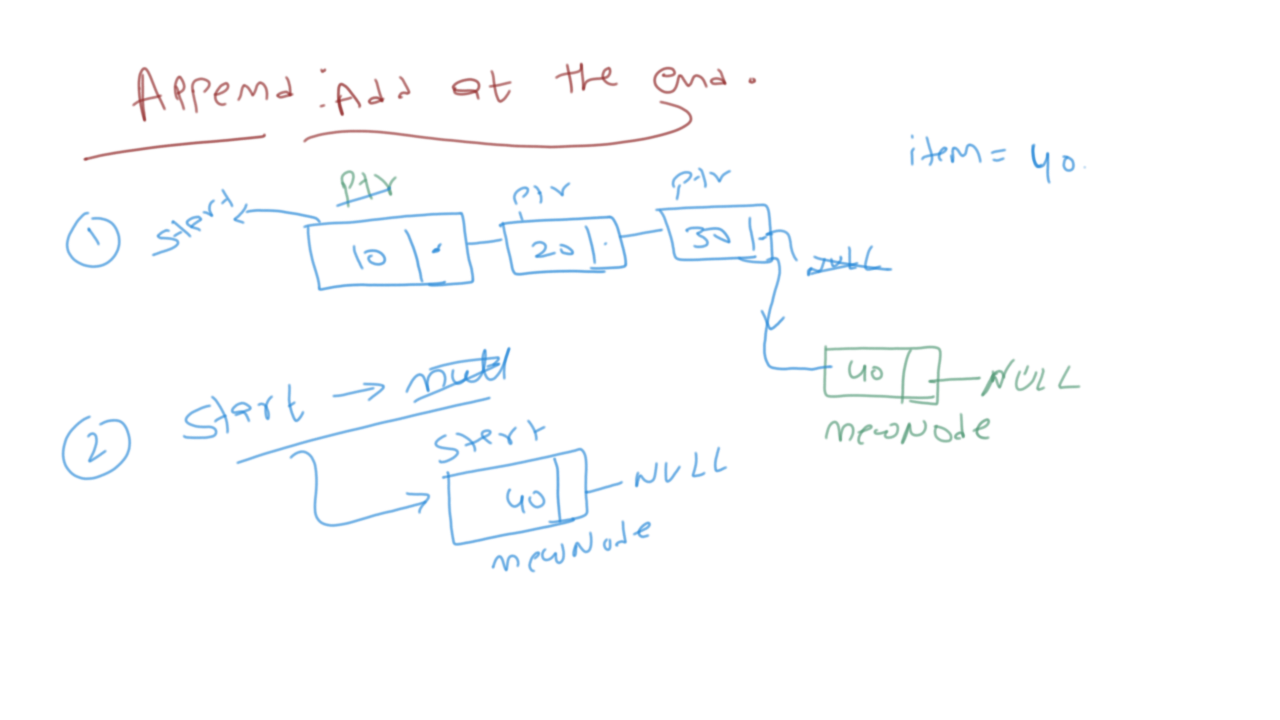 Append : Add at the end.
item = 40.
ptr ptr ptr
1 start 10 20 30 NULL
40 NULL
newNode
2 Start → null
Start
40 NULL
newNode